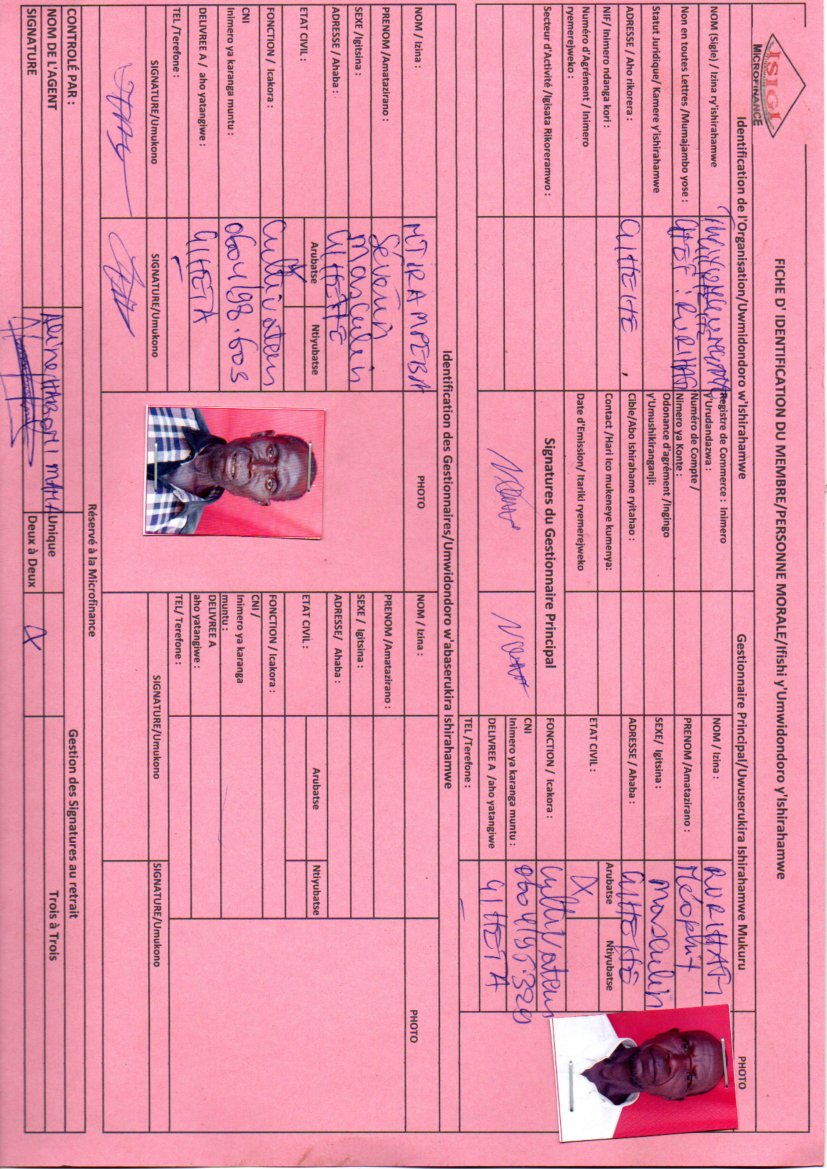 ISIGI
MICROFINANCE
FICHE D' IDENTIFICATION DU MEMBRE/PERSONNE MORALE/Ifishi y'Umwidondoro y'Ishirahamwe
Identification de l'Organisation/Uwmidondoro w'Ishirahamwe
Gestionnaire Principal/Uwuserukira Ishirahamwe Mukuru
PHOTO
NOM (Sigle) / Izina ry'ishirahamwe
Registre de Commerce : Inimero y'Urudandazwa :
NOM / Izina :
Non en toutes Lettres /Mumajambo yose :
CHEZ : RURIHATI
Numéro de Compte / Nimero ya Konte :
PRENOM /Amatazirano :
Statut Juridique/ Kamere y'ishirahamwe
Odonance d'agrément /Ingingo y'Umushikiranganji:
SEXE/ Igitsina :
masculin
ADRESSE / Aho rikorera :
GIHEHE
Cible/Abo ishirahame ryitahao :
ADRESSE / Ahaba :
GIHEHE
NIF/ Inimero ndanga kori :
Contact /Hari ico mukeneye kumenya:
ETAT CIVIL :
Arubatse
Ntiyubatse
X
Numéro d'Agrément / Inimero ryemerejweko :
Date d'Emission/ Itariki ryemerejweko
Secteur d'Activité /Igisata Rikoreramwo :
Signatures du Gestionnaire Principal
FONCTION / Icakora :
Cultivateur
CNI
Inimero ya karanga muntu :
0604/95.329
DELIVREE A /aho yatangiwe
GIHETA
TEL /Terefone :
–
Identification des Gestionnaires/Umwidondoro w'abaserukira Ishirahamwe
NOM / Izina :
NTIRAMPEBA
PHOTO
NOM / Izina :
PHOTO
PRENOM /Amatazirano :
Séverin
PRENOM /Amatazirano :
SEXE /Igitsina :
masculin
SEXE / Igitsina :
ADRESSE / Ahaba :
GIHEHE
ADRESSE/ Ahaba :
ETAT CIVIL :
Arubatse
Ntiyubatse
X
ETAT CIVIL :
Arubatse
Ntiyubatse
FONCTION / Icakora :
Cultivateur
FONCTION / Icakora :
CNI
Inimero ya karanga muntu :
0604/98.603
CNI /
Inimero ya karanga muntu :
DELIVREE A / aho yatangiwe :
GIHETA
DELIVREE A
aho yatangiwe :
TEL /Terefone :
–
TEL/ Terefone :
SIGNATURE/Umukono
SIGNATURE/Umukono
SIGNATURE/Umukono
SIGNATURE/Umukono
Réservé à la Microfinance
CONTROLÉ PAR :
Gestion des Signatures au retrait
NOM DE L'AGENT
Aline HABONIMANA
Unique
Trois à Trois
SIGNATURE
Deux à Deux
X